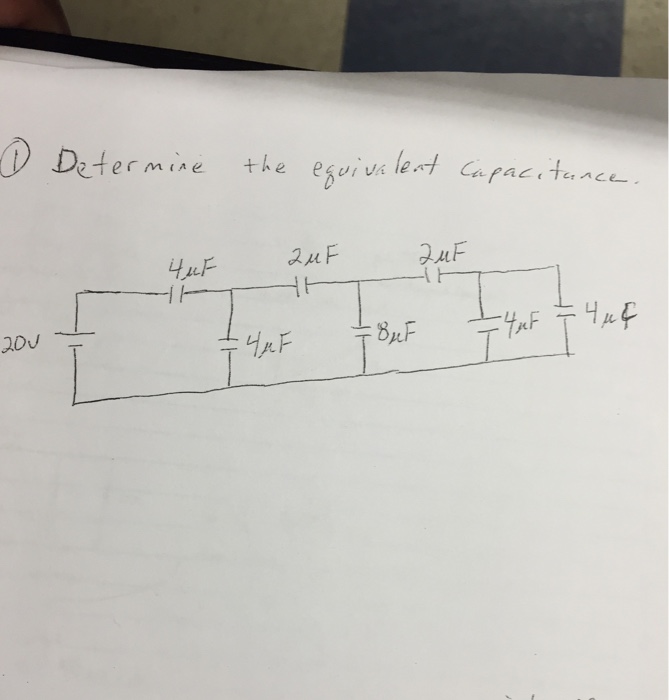 ① Determine the equivalent capacitance.
4μF 2μF 2μF
20V 4μF 8μF 4μF 4μF